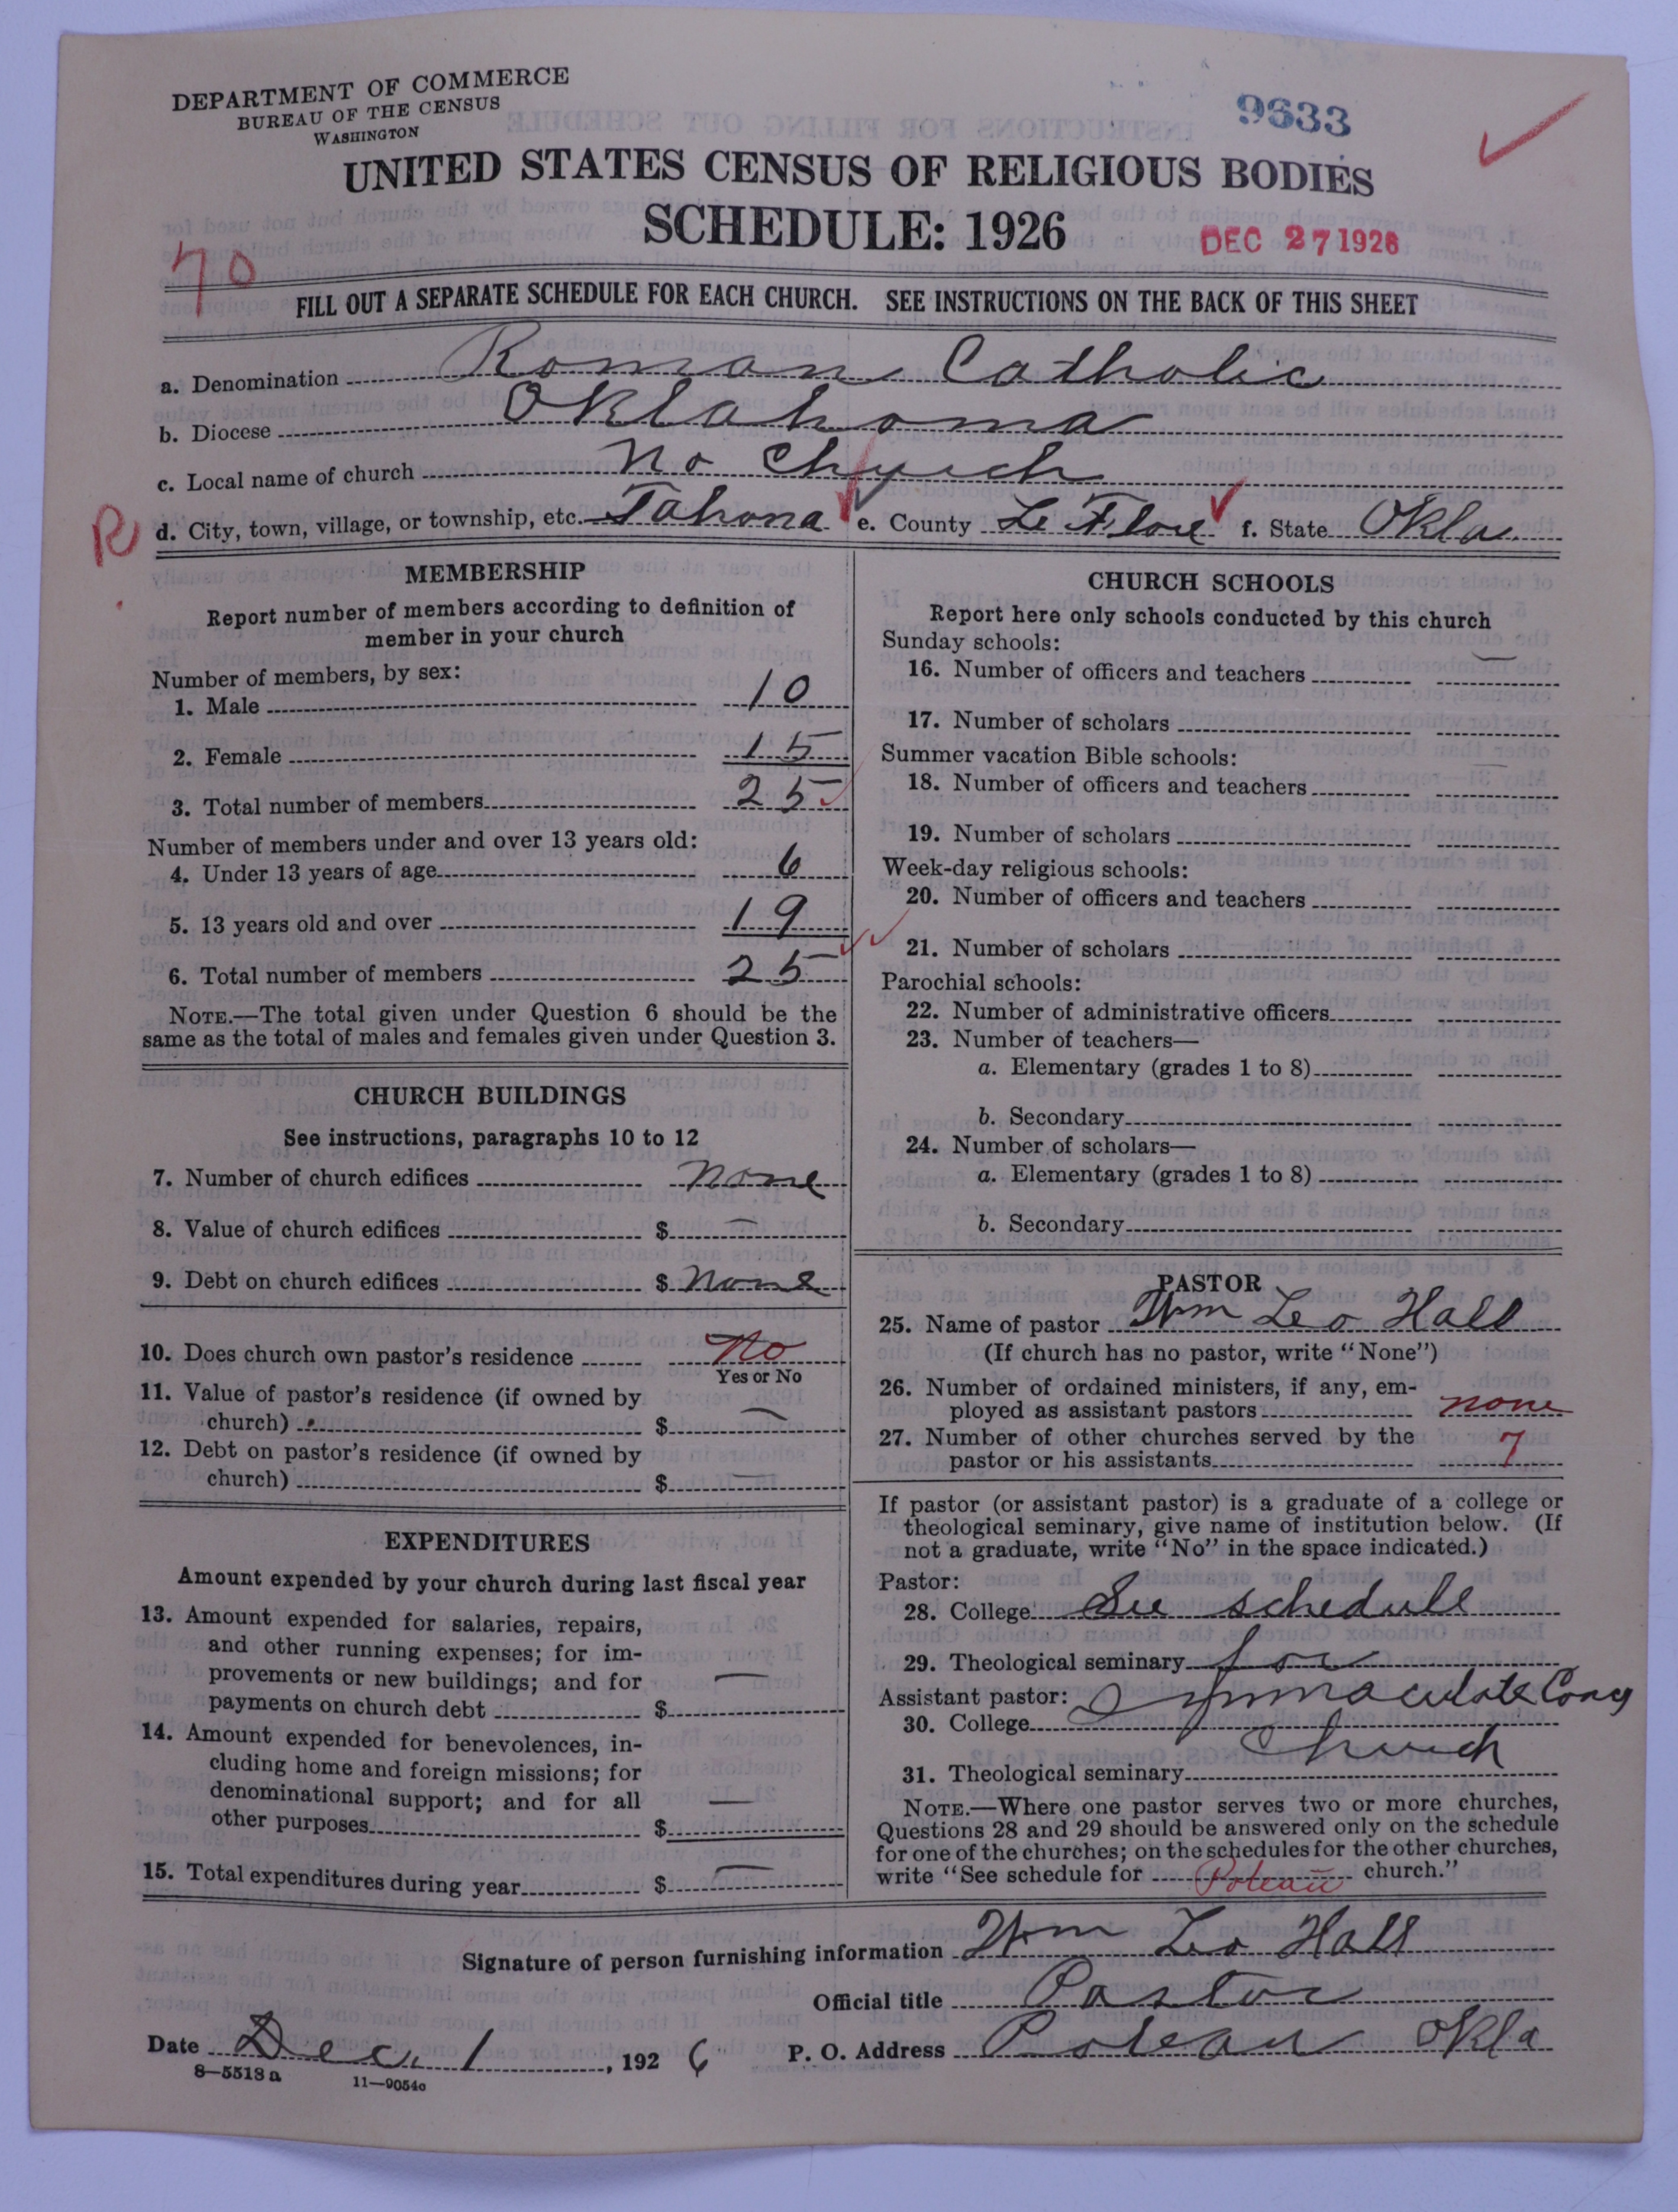 DEPARTMENT OF COMMERCE
BUREAU OF THE CENSUS
WASHINGTON
9633
UNITED STATES CENSUS OF RELIGIOUS BODIES
SCHEDULE: 1926
DEC 27 1926
70
FILL OUT A SEPARATE SCHEDULE FOR EACH CHURCH. SEE INSTRUCTIONS ON THE BACK OF THIS SHEET
a. Denomination Roman Catholic
b. Diocese Oklahoma
c. Local name of church No Church
R
d. City, town, village, or township, etc. Tahona e. County Le Flore f. State Okla.
MEMBERSHIP
Report number of members according to definition of
member in your church
Number of members, by sex:
1. Male 10
2. Female 15
3. Total number of members 25
Number of members under and over 13 years old:
4. Under 13 years of age 6
5. 13 years old and over 19
6. Total number of members 25
NOTE.—The total given under Question 6 should be the
same as the total of males and females given under Question 3.
CHURCH BUILDINGS
See instructions, paragraphs 10 to 12
7. Number of church edifices none
8. Value of church edifices $ —
9. Debt on church edifices $ none
10. Does church own pastor's residence No
Yes or No
11. Value of pastor's residence (if owned by
church) $ —
12. Debt on pastor's residence (if owned by
church) $ —
EXPENDITURES
Amount expended by your church during last fiscal year
13. Amount expended for salaries, repairs,
and other running expenses; for im-
provements or new buildings; and for
payments on church debt $ —
14. Amount expended for benevolences, in-
cluding home and foreign missions; for
denominational support; and for all
other purposes $ —
15. Total expenditures during year $ —
CHURCH SCHOOLS
Report here only schools conducted by this church
Sunday schools:
16. Number of officers and teachers —
17. Number of scholars
Summer vacation Bible schools:
18. Number of officers and teachers
19. Number of scholars
Week-day religious schools:
20. Number of officers and teachers
21. Number of scholars
Parochial schools:
22. Number of administrative officers
23. Number of teachers—
a. Elementary (grades 1 to 8)
b. Secondary
24. Number of scholars—
a. Elementary (grades 1 to 8)
b. Secondary
PASTOR
25. Name of pastor Wm Leo Hall
(If church has no pastor, write "None")
26. Number of ordained ministers, if any, em-
ployed as assistant pastors none
27. Number of other churches served by the
pastor or his assistants 7
If pastor (or assistant pastor) is a graduate of a college or
theological seminary, give name of institution below. (If
not a graduate, write "No" in the space indicated.)
Pastor:
28. College See schedule
29. Theological seminary for
Assistant pastor: Immaculate Conc
30. College
Church
31. Theological seminary
NOTE.—Where one pastor serves two or more churches,
Questions 28 and 29 should be answered only on the schedule
for one of the churches; on the schedules for the other churches,
write "See schedule for Poteau church."
Signature of person furnishing information Wm Leo Hall
Official title Pastor
Date Dec. 1, 1926 P. O. Address Poteau Okla
8—5518 a 11—9054c